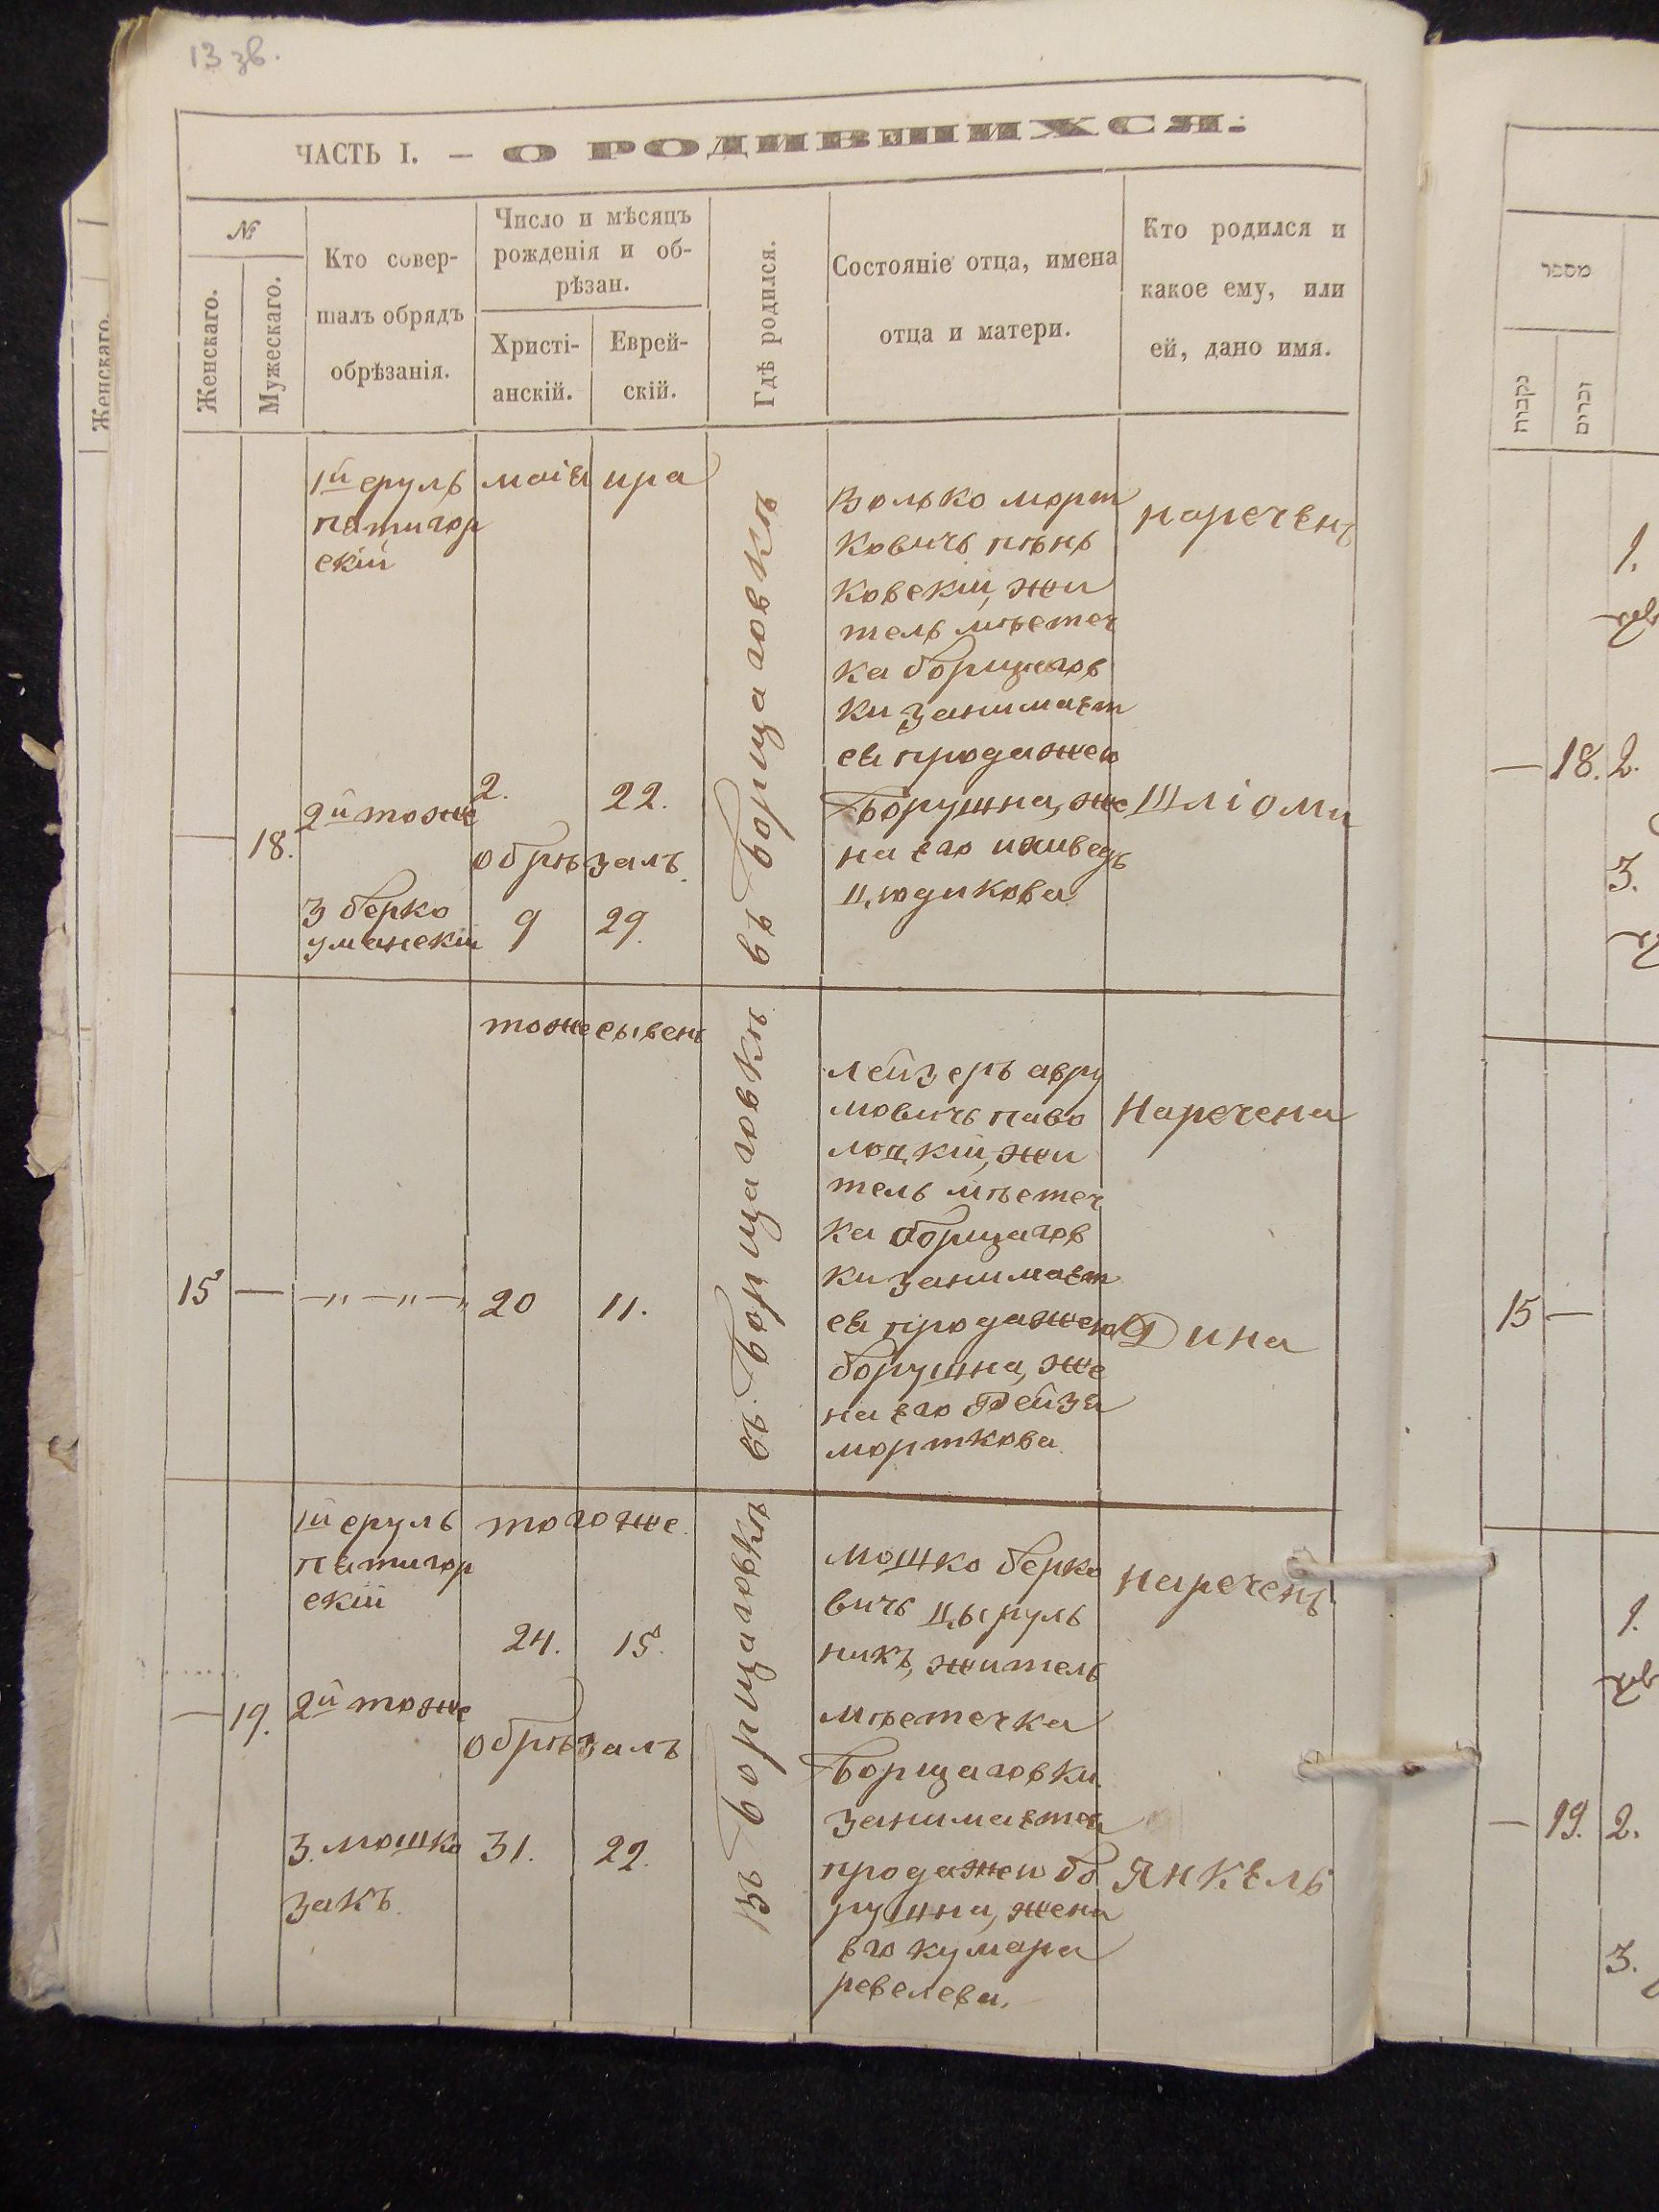 13 зв.
ЧАСТЬ I. — О РОДИВШИХСЯ.
№
Женскаго.
Мужескаго.
Кто совер-
шалъ обрядъ
обрѣзанія.
Число и мѣсяцъ
рожденія и об-
рѣзан.
Христі-
анскій.
Еврей-
скій.
Гдѣ родился.
Состояніе отца, имена
отца и матери.
Кто родился и
какое ему, или
ей, дано имя.
— 18.
1й сруль
пятигор
скій
2й тоже
3 берко
уманскій
маія ира
2. 22.
обрѣзалъ.
9 29.
въ Борщаговкѣ
Волько морт
ковичь пѣнь
ковскій, жи
тель мѣстеч
ка борщагов
ки занимает
ся продажею
Борушна, же
на его
цюдикова
нареченъ
Шліома
15 — —„—„—„
тоже сывенъ
20 11.
въ Борщаговкѣ
лейзеръ авру
мовичь паво
лоцкій, жи
тель мѣстеч
ка борщагов
ки занимает
ся продажею
борушна, же
на его Рейзя
морткова.
Наречена
Дина
— 19.
1й сруль
пятигор
скій
2й тоже
3. мошко
закъ.
того же.
24. 15.
обрѣзалъ
31. 22.
Въ Борщаговкѣ
мошко берко
вичь цыруль
никъ, житель
мѣстечка
Борщаговки.
занимается
продажеи бо
рушна, жена
его кумара
ревелева.
нареченъ
Янкель
Женскаго.
מספר
נקבות
זכרים
1.
— 18. 2.
3.
15 —
1.
— 19. 2.
3.